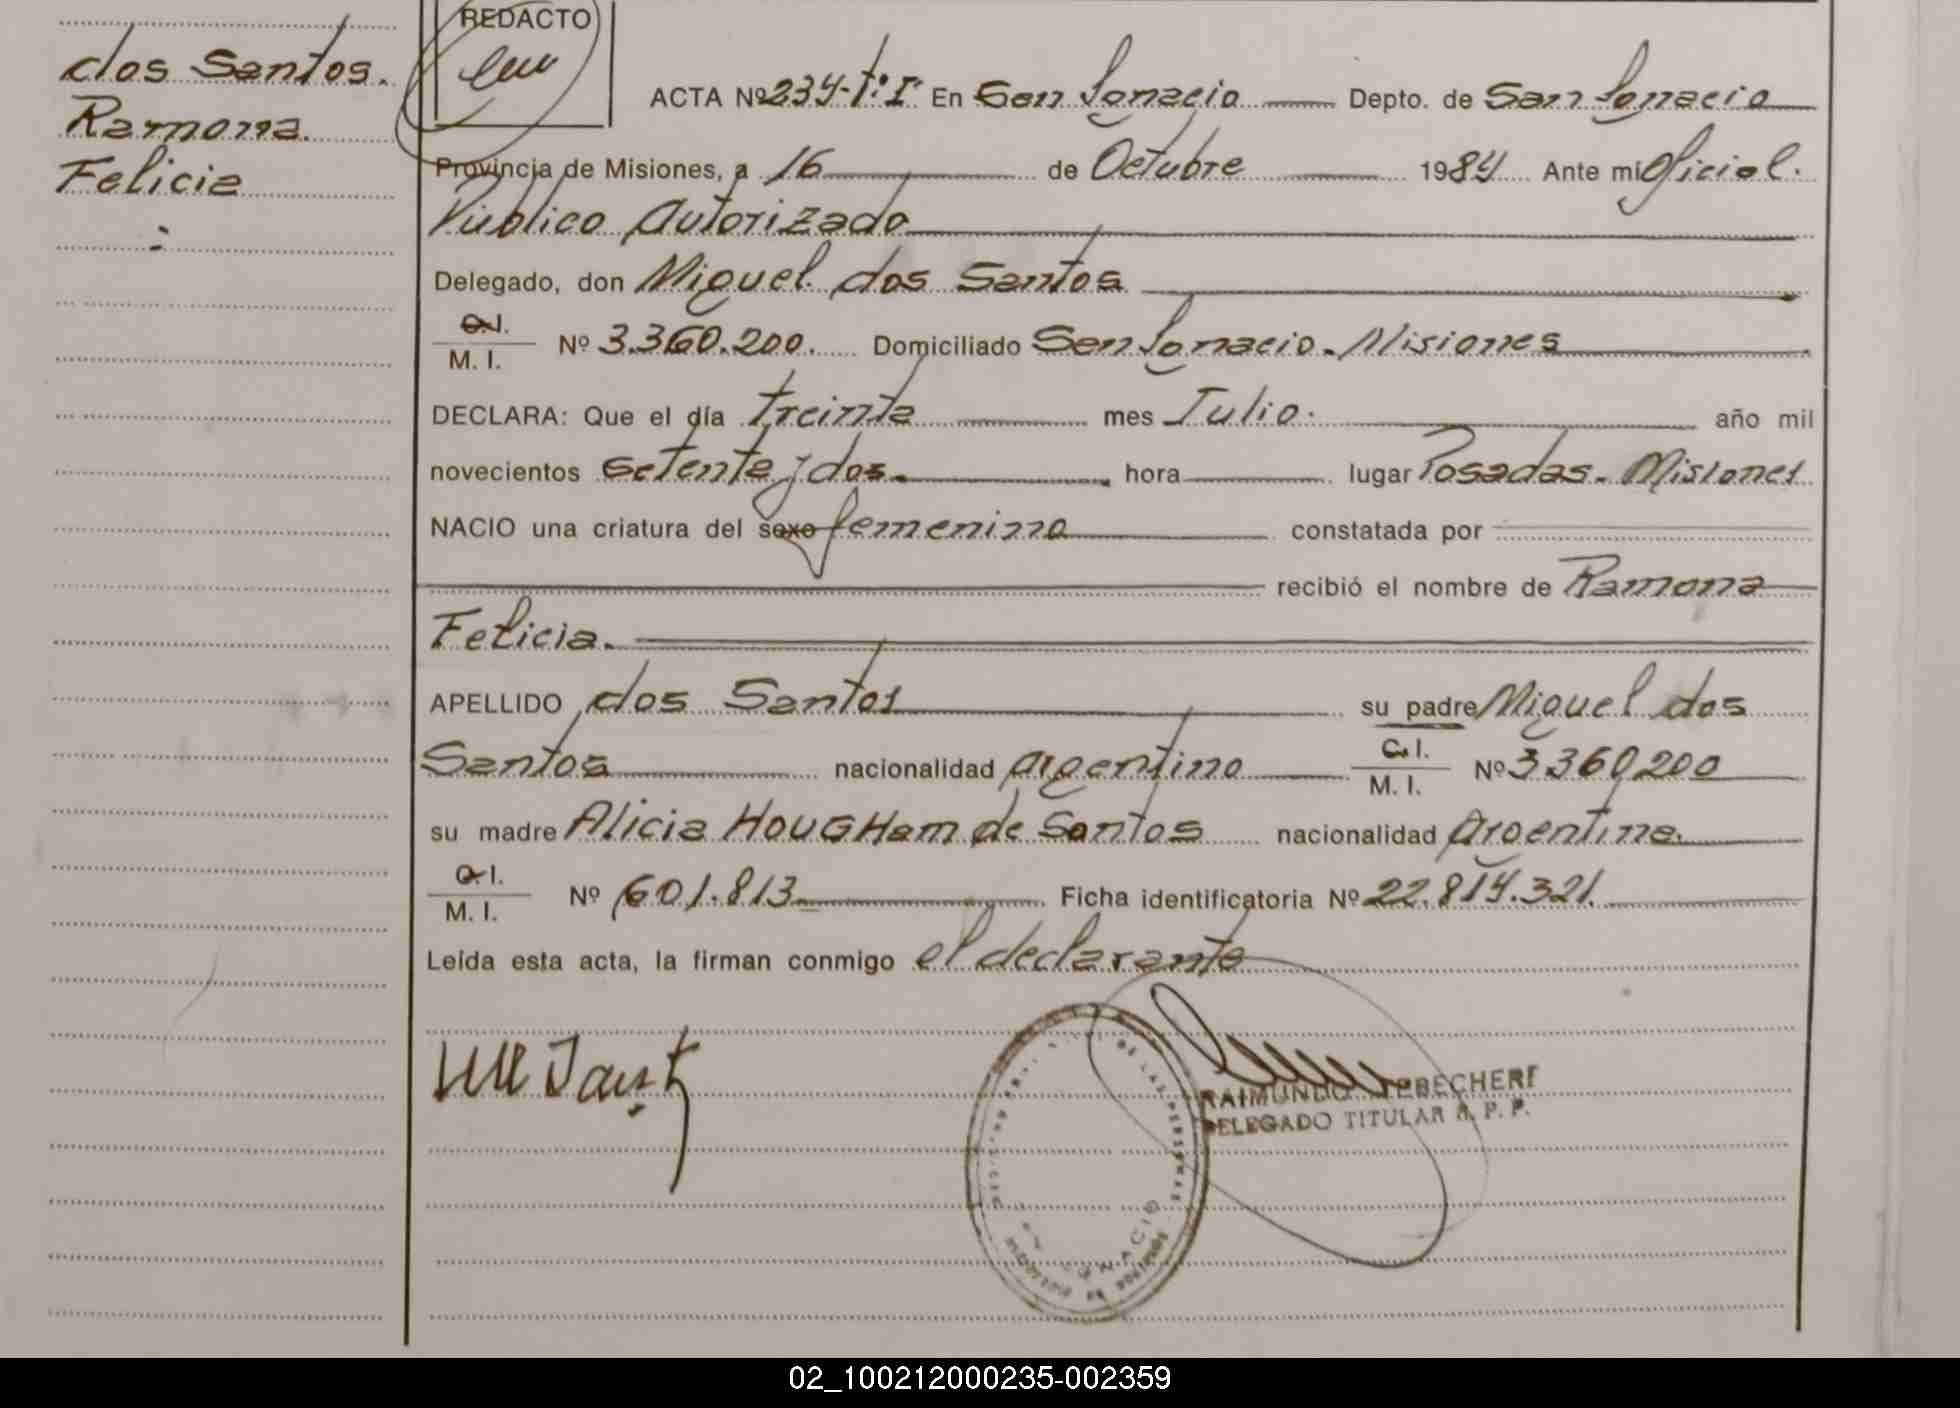 dos Santos.
Ramona.
Felicia
REDACTO
ACTA Nº 234-Tº I En San Ignacio Depto. de San Ignacio
Provincia de Misiones, a 16 de Octubre 1984 Ante mi Oficial.
Público Autorizado
Delegado, don Miguel dos Santos
C.I.
M. I. Nº 3.360.200. Domiciliado San Ignacio. Misiones
DECLARA: Que el día treinta mes Julio. año mil
novecientos setenta y dos. hora lugar Posadas. Misiones
NACIO una criatura del sexo femenino constatada por
recibió el nombre de Ramona
Felicia.
APELLIDO dos Santos su padre Miguel dos
Santos nacionalidad argentino C.I.
M. I. Nº 3.360.200
su madre Alicia HOUGHam de Santos nacionalidad Argentina.
C.I.
M. I. Nº 601.813 Ficha identificatoria Nº 22.814.321.
Leída esta acta, la firman conmigo el declarante
RAIMUNDO
DELEGADO TITULAR R. P. P.
DE LAS PERSONAS
02_100212000235-002359